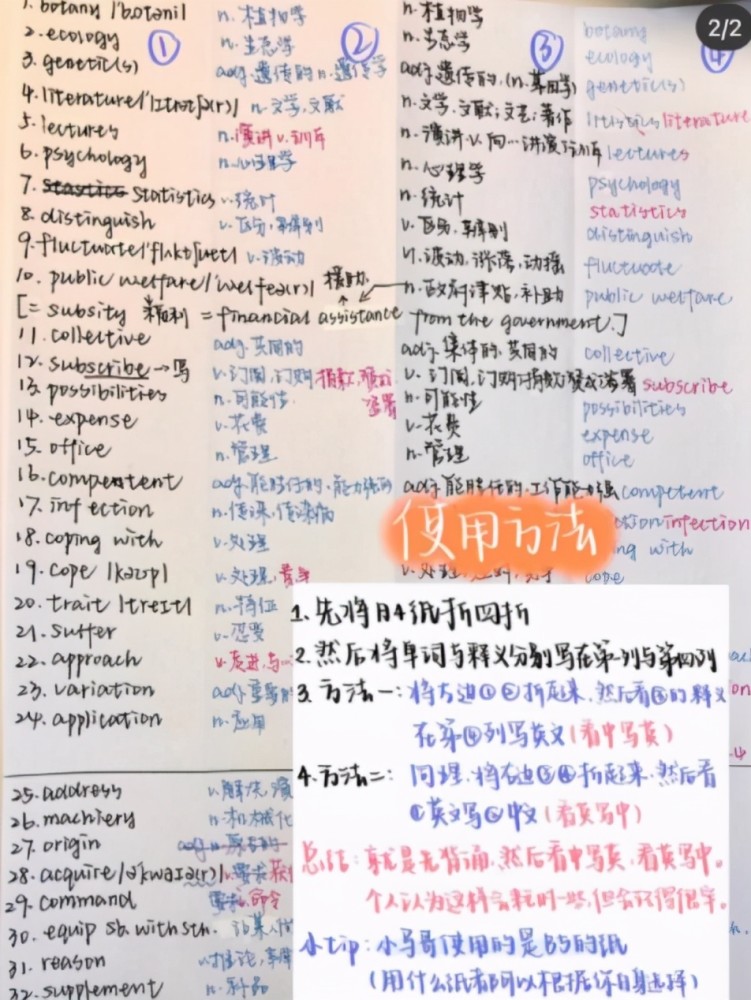 2/2
① ② ③ ④
1. botany /'botəni/ n. 植物学 n. 植物学 botany
2. ecology n. 生态学 n. 生态学 ecology
3. genetic(s) adj. 遗传的 n. 遗传学 adj. 遗传的, (n. 基因学) genetic(s)
4. literature n. 文学, 文献 n. 文学, 文献; 文艺; 著作 literature
5. lectures n. 演讲 v. 训斥 n. 演讲 v. 向…讲演 训斥 lectures
6. psychology n. 心理学 n. 心理学 psychology
7. stastics statistics v. 统计 n. 统计 statistics
8. distinguish v. 区分, 辨别 v. 区分, 辨别 distinguish
9. fluctuate v. 波动 v. 波动, 涨落, 动摇 fluctuate
10. public welfare 援助 n. 政府津贴, 补助 public welfare
[= subsity 福利 = financial assistance from the government.]
11. collective adj. 共同的 adj. 集体的, 共同的 collective
12. subscribe → 写 v. 订阅, 订购 捐款, 赞成 签署 v. 订阅, 订购 捐款 赞成 签署 subscribe
13. possibilities n. 可能性 n. 可能性 possibilities
14. expense v. 花费 v. 花费 expense
15. office n. 管理 n. 管理 office
16. competent adj. 能胜任的, 能力强的 adj. 能胜任的, 工作能力强 competent
17. infection n. 传染, 传染病 infection
18. coping with v. 处理 ng with
19. cope v. 处理, cope
20. trait /treit/ n. 特征
21. suffer v. 忍受
22. approach v. 走进, 与
23. variation
24. application n. 应用
25. address v. 解决, 演
26. machinery n. 机械化
27. origin
28. acquire
29. command 要求, 命令
30. equip sb. with sth.
31. reason v. 推论,
32. supplement n. 补品
使用方法
1. 先将A4纸折四折
2. 然后将单词与释义分别写在第一列与第四列
3. 方法一: 将右边①②折起来, 然后看③的释义
在第④列写英文(看中写英)
4. 方法二: 同理, 将右边③④折起来, 然后看
①英文写②中文(看英写中)
总结: 就是先背诵, 然后看中写英, 看英写中。
个人认为这样会耗时一些, 但会记得很牢。
小tip: 小马哥使用的是B5的纸
(用什么纸都可以根据你自身选择)